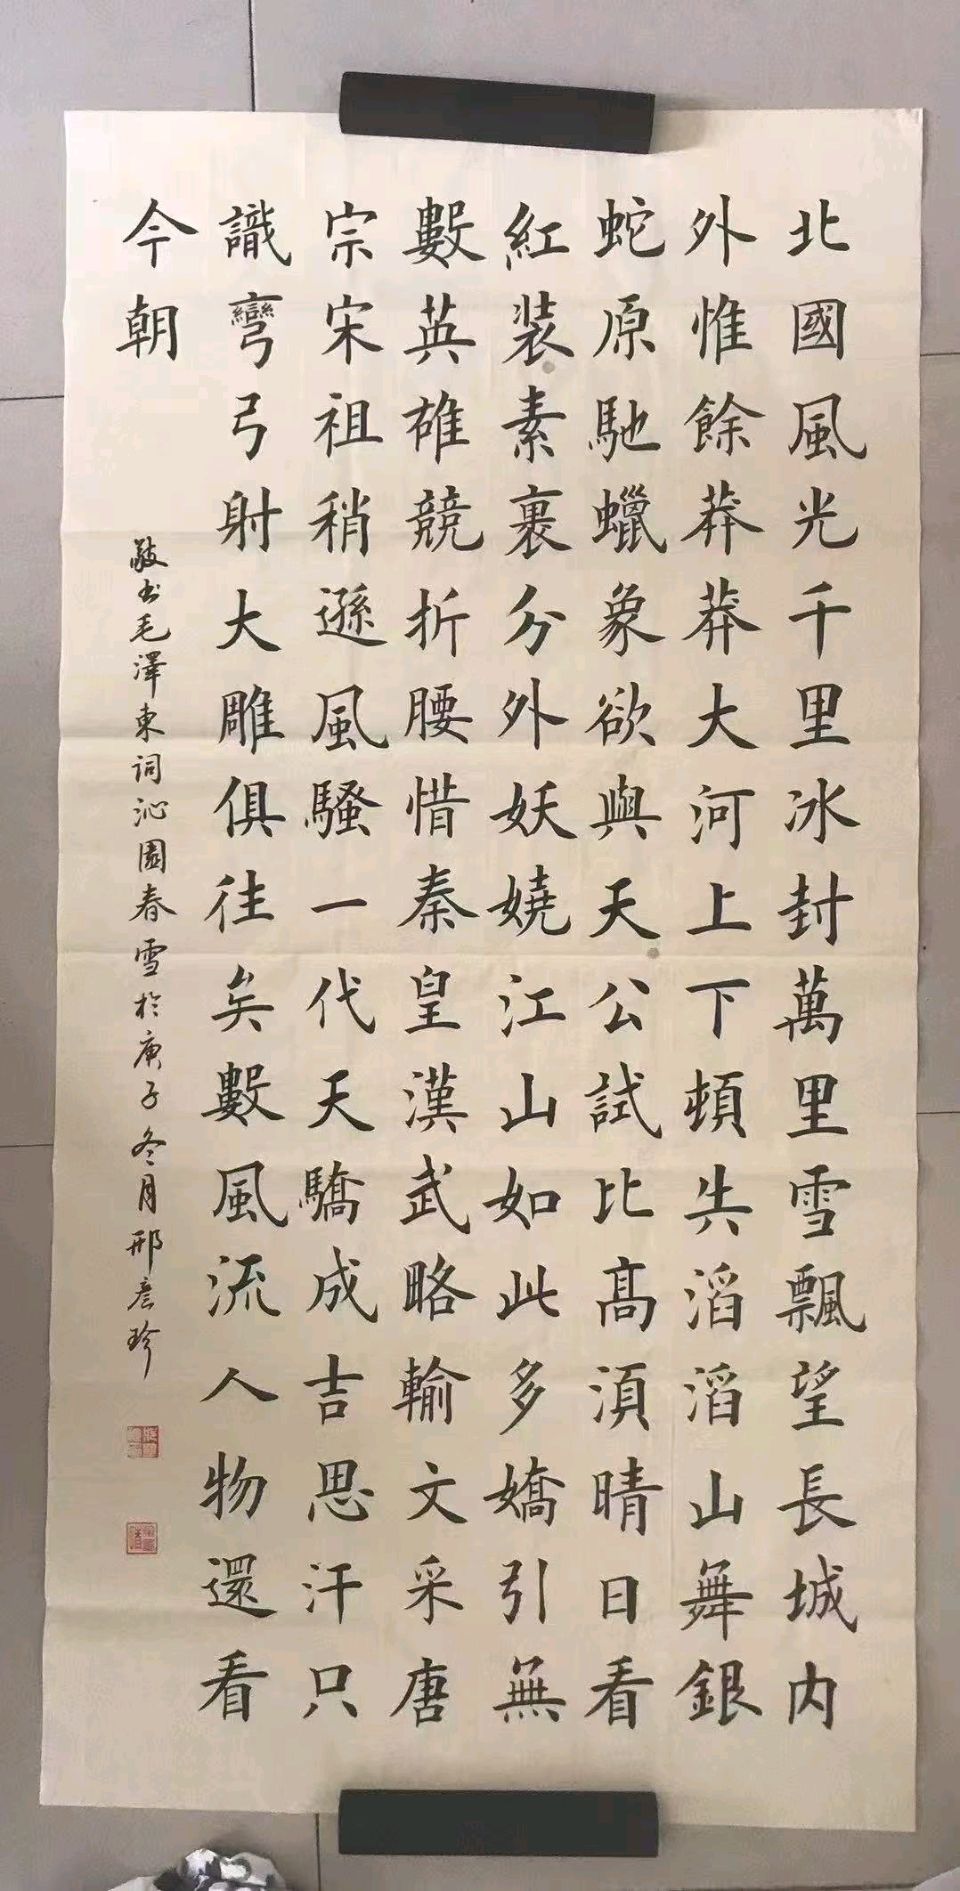 北國風光千里冰封萬里雪飄望長城内
外惟餘莽莽大河上下頓失滔滔山舞銀
蛇原馳蠟象欲與天公試比髙須晴日看
紅裝素裹分外妖嬈江山如此多嬌引無
數英雄競折腰惜秦皇漢武略輸文采唐
宗宋祖稍遜風騷一代天驕成吉思汗只
識彎弓射大雕俱往矣數風流人物還看
今朝
敬书毛澤東詞沁園春雪於庚子冬月邢彦珍